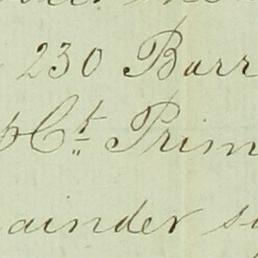 230 Barr
pCt Prim
ainder s